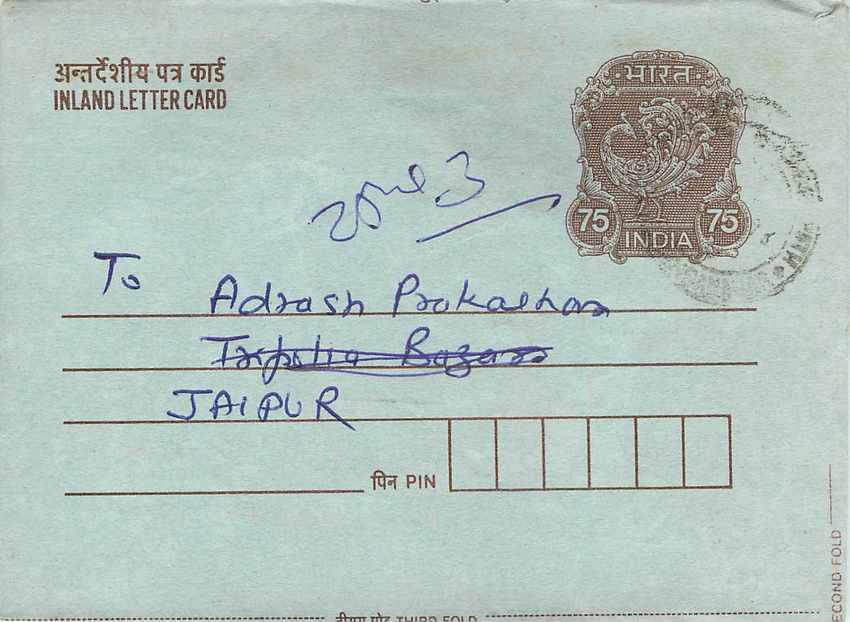 अन्तर्देशीय पत्र कार्ड
INLAND LETTER CARD
भारत
75 75
INDIA
To
Adrash Prokashan
Tripolia Bazar
JAIPUR
पिन PIN
SECOND FOLD
तीसरा मोड़ THIRD FOLD